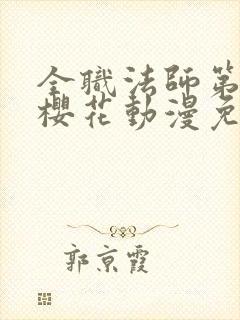 全職法師第
櫻花動漫免
郭京霞